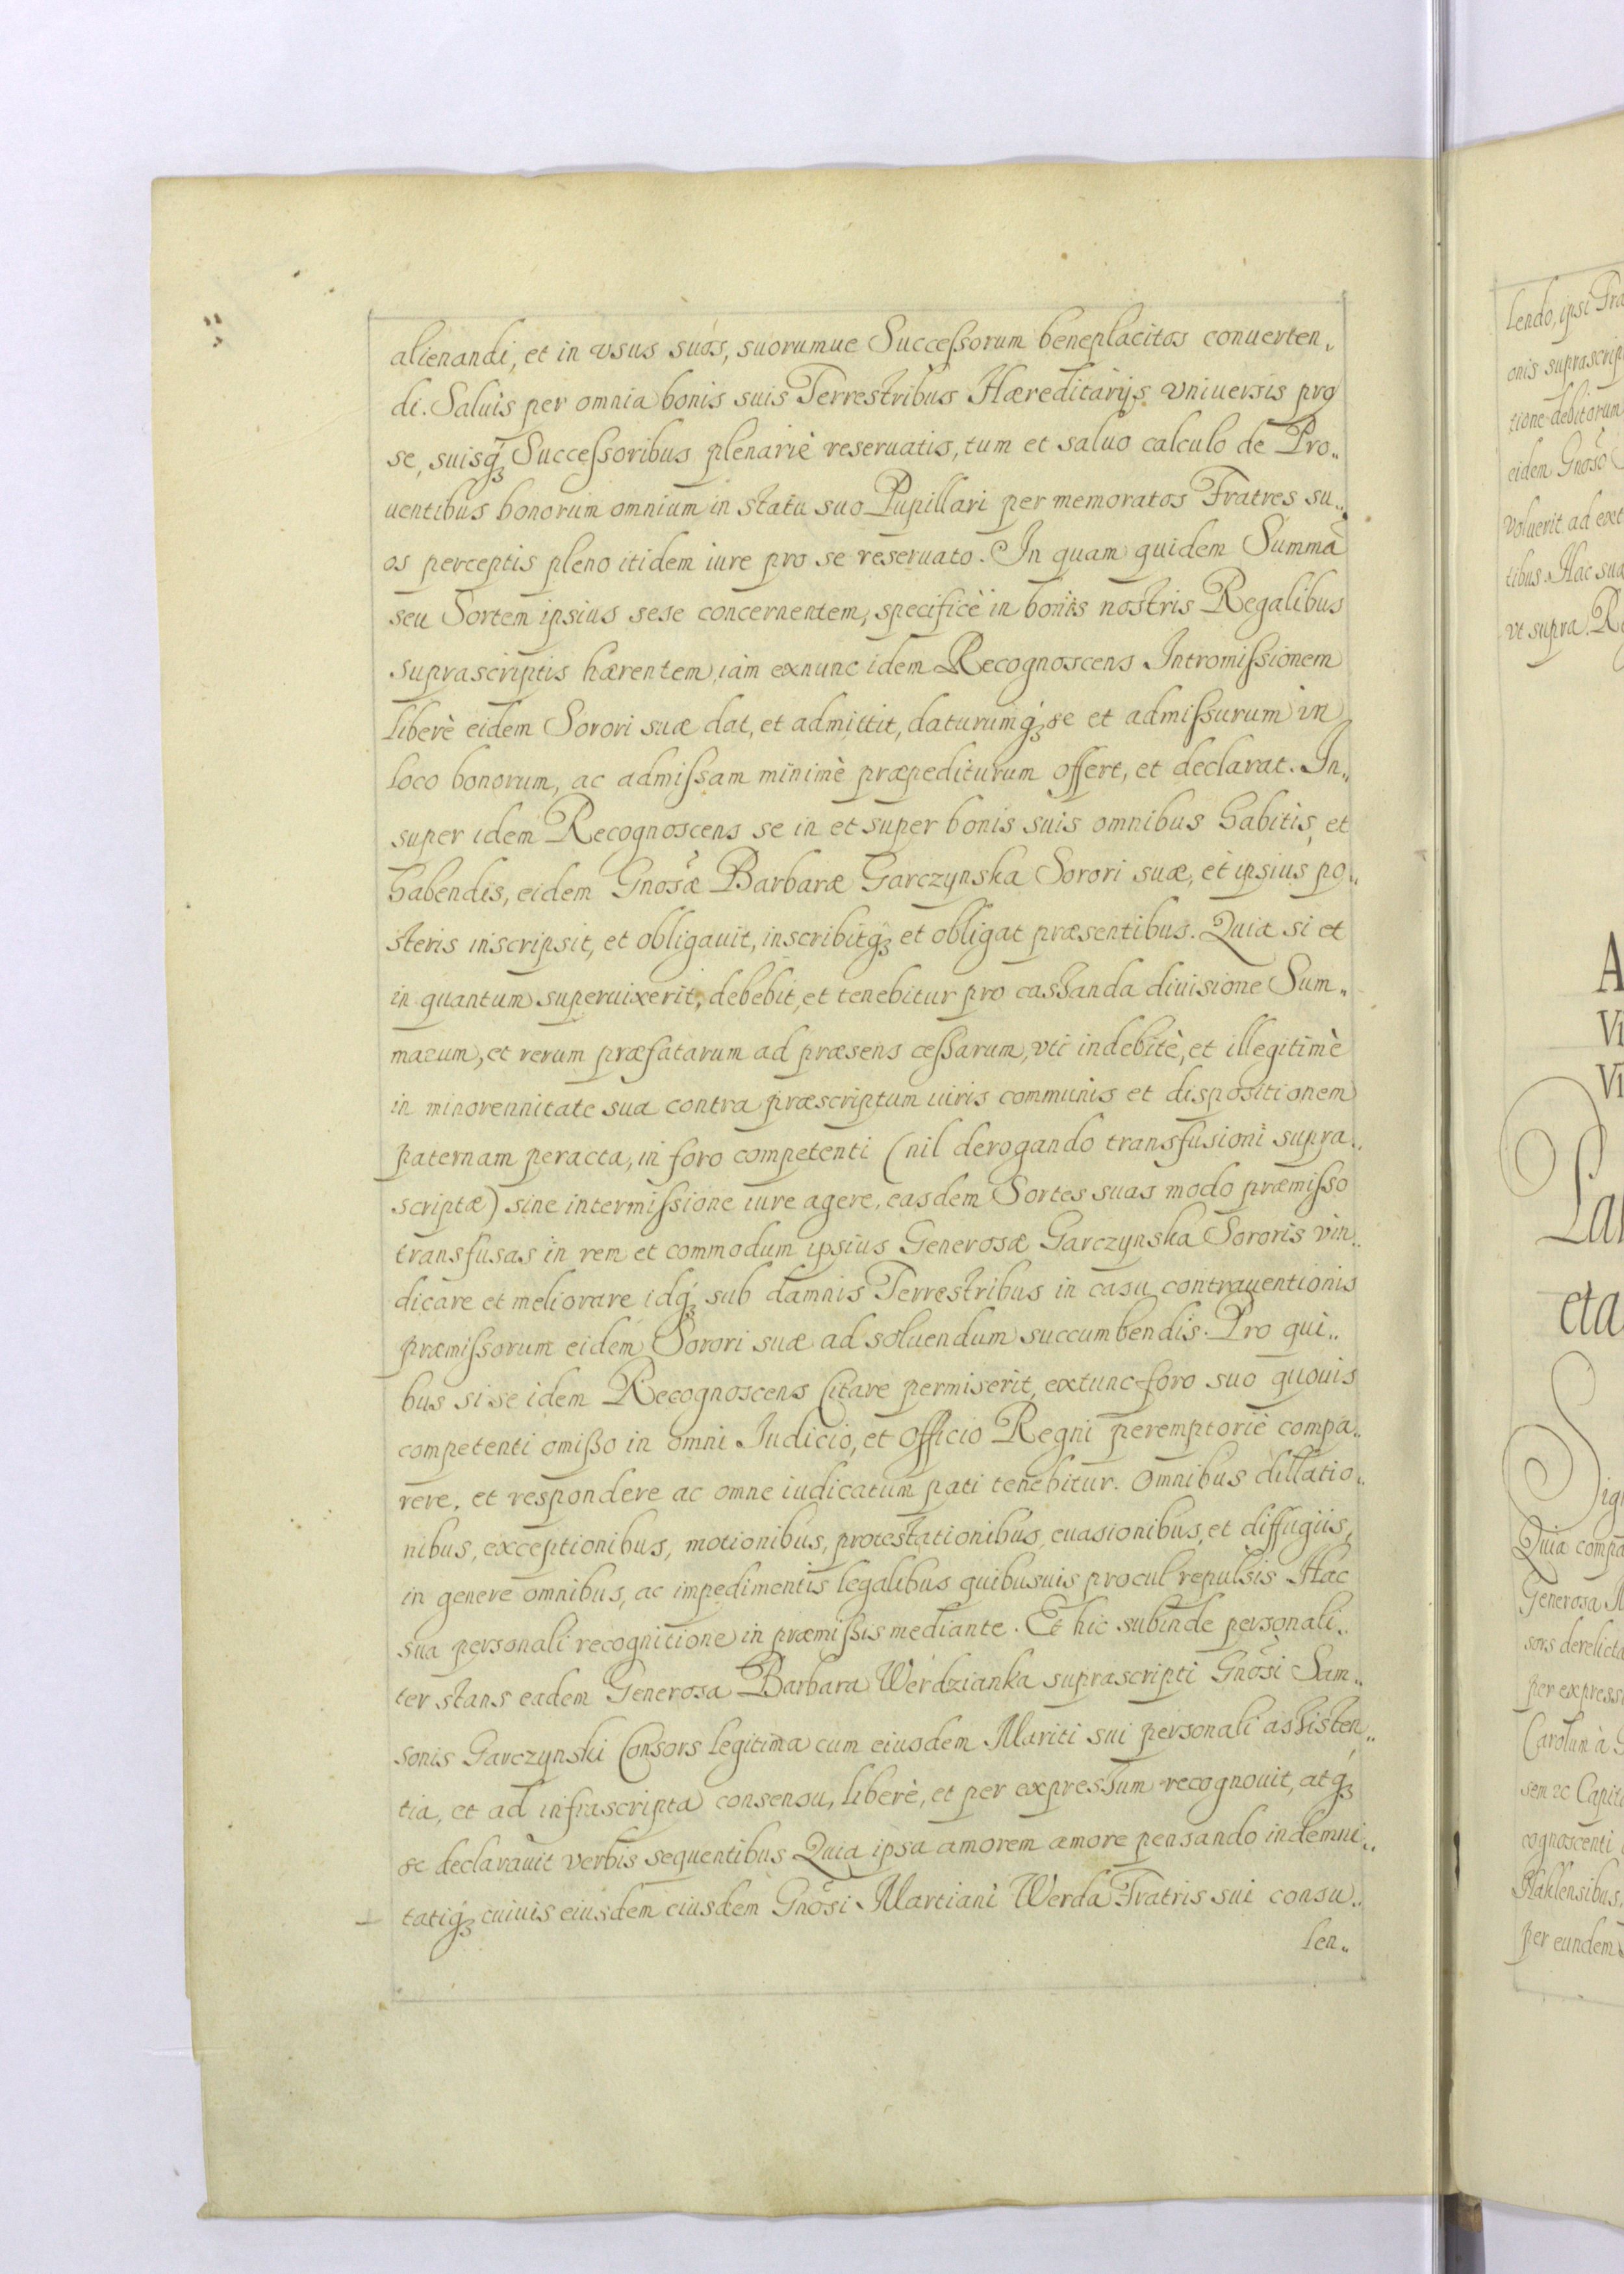 alienandi, et in vsus suos, suorumue Successorum beneplacitos conuerten„
di. Saluis per omnia bonis suis Terrestribus Hæreditarijs vniuersis pro
se, suisq̃ꝫ Successoribus plenariè reseruatis, tum et saluo calculo de Pro„
uentibus bonorum omnium in statu suo Pupillari per memoratos Fratres su„
os perceptis pleno itidem iure pro se reseruato. In quam quidem Summã
seu Sortem ipsius sese concernentem, specificè in bonis nostris Regalibus
suprascriptis hærentem, iam exnunc idem Recognoscens Intromissionem
liberè eidem Sorori suæ dat, et admittit, daturumq́ꝫ se et admissurum in
loco bonorum, ac admissam minimè præpediturum offert, et declarat. In„
super idem Recognoscens se in et super bonis suis omnibus habitis, et
habendis, eidem Gnosæ Barbaræ Garczynska Sorori suæ, et ipsius po„
steris inscripsit, et obligauit, inscribitq̃ꝫ et obligat præsentibus. Quia si et
in quantum superuixerit, debebit, et tenebitur pro cassanda diuisione Sum„
marum, et rerum præfatarum ad præsens cessarum, vti indebitè, et illegitimè
in minorennitate sua contra præscriptum iuris communis et dispositionem
paternam peracta, in foro competenti (nil derogando transfusioni supra„
scriptæ) sine intermissione iure agere, easdem Sortes suas modo præmisso
transfusas in rem et commodum ipsius Generosæ Garczynska Sororis vin„
dicare et meliorare idq́ꝫ sub damnis Terrestribus in casu contrauentionis
præmissorum eidem Sorori suæ ad soluendum succumbendis. Pro qui„
bus si se idem Recognoscens Citare permiserit, extunc foro suo quouis
competenti omißo in omni Iudicio, et Officio Regni peremptoriè compa„
rere, et respondere ac omne iudicatum pati tenebitur. Omnibus dillatio„
nibus, exceptionibus, motionibus, protestationibus, euasionibus, et diffugiis,
in genere omnibus, ac impedimentis legalibus quibusuis procul repulsis Hac
sua personali recognitione in præmissis mediante. Et hic subinde personali„
ter stans eadem Generosa Barbara Werdzianka suprascripti Gnosi Sam„
sonis Garczynski Consors legitima cum eiusdem Mariti sui personali assisten„
tia, et ad infrascripta consensu, liberè, et per expressum recognouit, atq̃ꝫ
se declarauit verbis sequentibus Quia ipsa amorem amore pensando indemni„
tatiq́ꝫ cuiuis eiusdem eiusdem Gnosi Martiani Werda Fratris sui consu„
len„
lendo, ipsi Fra
onis suprascrip
tione debitorum
eidem Gnoso
voluerit ad ext
tibus. Hac sua
vt supra. R
A
VI
VI
Lau
eta
Sig
Quia compa
Generosa
sors derelicta
per express
Carolum à
sem ꝛc Capit
cognoscenti
Naklensibus,
per eundem